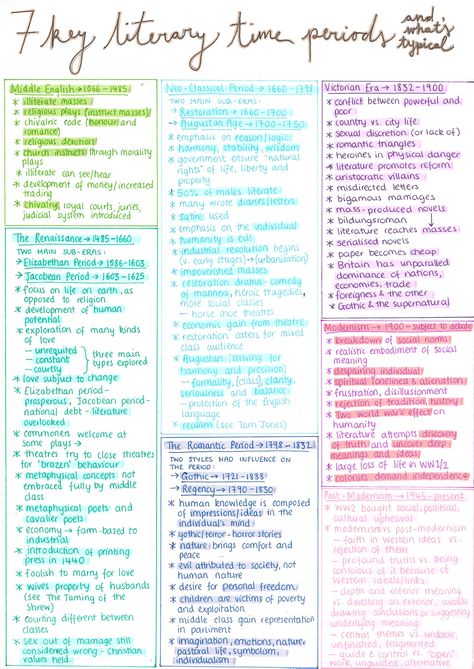 7 key literary time periods and what's typical
Middle English → 1066 - 1485
* illiterate masses
* religious plays (instruct masses)
* chivalric code (honour and
romance)
* religious devotion
* church instructs through morality
plays
* illiterate can see/hear
* development of money/increased
trading
* chivalry, royal courts, juries,
judicial system introduced
The Renaissance → 1485 - 1660
TWO MAIN SUB-ERAS:
→ Elizabethan Period → 1586 - 1603
→ Jacobean Period → 1603 - 1625
* focus on life on earth, as
opposed to religion
* development of human
potential
* exploration of many kinds
of love
- unrequited
- constant
- courtly
three main
types explored
* love subject to change
* Elizabethan period -
prosperous, Jacobean period -
national debt - literature
overlooked
* commoners welcome at
some plays →
* theatres try to close theatres
for 'brazen' behaviour
* metaphysical concepts not
embraced fully by middle
class
* metaphysical poets and
cavalier poets
* economy → farm-based to
industrial
* introduction of printing
press in 1440
* foolish to marry for love
* wives property of husbands
(see The Taming of the
Shrew)
* courting different between
classes
* sex out of marriage still
considered wrong - Christian
values held.
Neo-Classical Period → 1660 - 1798
TWO MAIN SUB-ERAS:
→ Restoration → 1660 - 1700
→ Augustan Age → 1700 - 1750
* emphasis on reason/logic
* harmony, stability, wisdom
* government ensure "natural
rights" of life, liberty and
property
* 50% of males literate
* many wrote diaries/letters
* satire used
* emphasis on the individual
* humanity is evil
* industrial revolution begins
(v. early stages) → (urbanisation)
* impoverished masses
* restoration drama - comedy
of manners, heroic tragedies,
more social classes
- horse shoe theatres
* economic gain from theatre
* restoration caters for mixed
class audience
* Augustan (striving for
harmony and precision)
- formality, (class), clarity,
seriousness and balance
- protection of the English
language
* realism (see Tom Jones)
The Romantic Period → 1798 - 1832
TWO STYLES HAD INFLUENCE ON
THE PERIOD:
→ Gothic → 1721 - 1838
→ Regency → 1790 - 1830
* human knowledge is composed
of impressions/ideas in the
individual's mind
* gothic/terror - horror stories
* nature brings comfort and
peace
* evil attributed to society, not
human nature
* desire for personal freedom
* children are victims of poverty
and exploitation
* middle class gain representation
in parliament
* imagination, emotions, nature,
pastoral life, symbolism,
individualism
Victorian Era → 1832 - 1900
* conflict between powerful and
poor
* country vs. city life
* sexual discretion (or lack of)
* romantic triangles
* heroines in physical danger
* literature promotes reform
* aristocratic villains
* misdirected letters
* bigamous marriages
* mass-produced novels
* bildungsroman
* literature reaches masses
* serialised novels
* paper becomes cheap
* Britain has unparalled
dominance of nations,
economies, trade
* foreigness & the other
* Gothic & the supernatural
Modernism → 1900 - subject to debate
* breakdown of social norms
* realistic embodiment of social
meaning
* despairing individual
* spiritual loneliness & alienation
* frustration, disillusionment
* rejection of tradition/history
* Two world war's effect on
humanity
* literature attempts discovery
of truth and uncover deep
meanings and ideas
* large loss of life in WW1/2
* colonies demand independence
Post-Modernism → 1945 - present
* WW2 bought social, political,
cultural upheaval
* modernism vs. post-modernism
- faith in western ideas vs.
rejection of them
- profound truths vs. being
conscious of it because of
western ideals/links
- depth and interior meaning
vs. dwelling on exterior, avoids
drawing conclusions or suggesting
underlying meaning.
- central themes vs. undable,
unfinished, fragmented
- guide & control vs. "open"
work, unguided, alternative